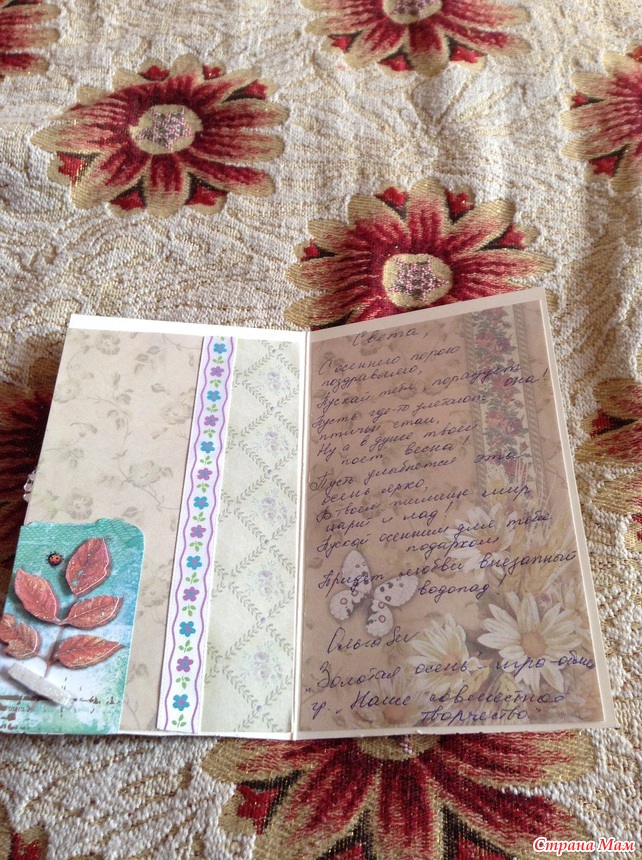 Света,
С осеннею порою
поздравляю,
Пускай тебя порадует
она!
Пусть где-то улетают
птичьи стаи,
Ну а в душе твоей
поет весна!
Пусть улыбнется эта
осень ярко,
В твоем жилище мир
царит и лад!
Пускай осенним для тебя
подарком
Придет любви внезапный
водопад!
Ольга
"Золотая осень" - игра-обмен
гр. "Наше совместное
творчество"
Страна Мам